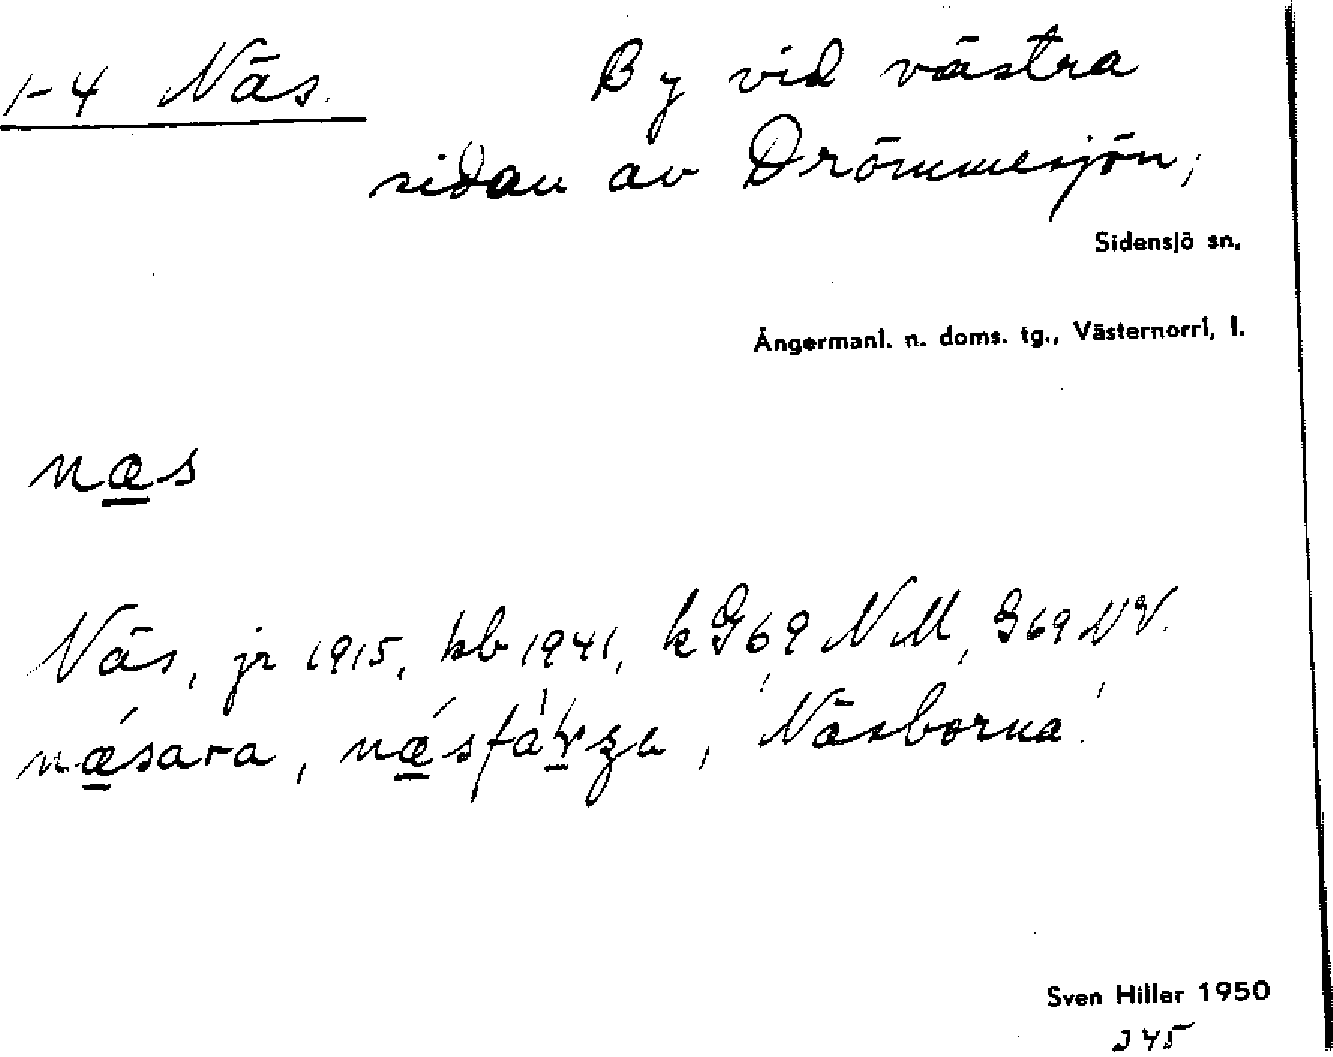 1-4 Näs. By vid västra
sidan av Drömmesjön,
Sidensjö sn.
Ångermanl. n. doms. tg., Västernorrl. l.
næs
Näs, jr 1915, kb 1941, k G69 NM, G69 NV.
næsara, 'Näsborna'
Sven Hiller 1950
245